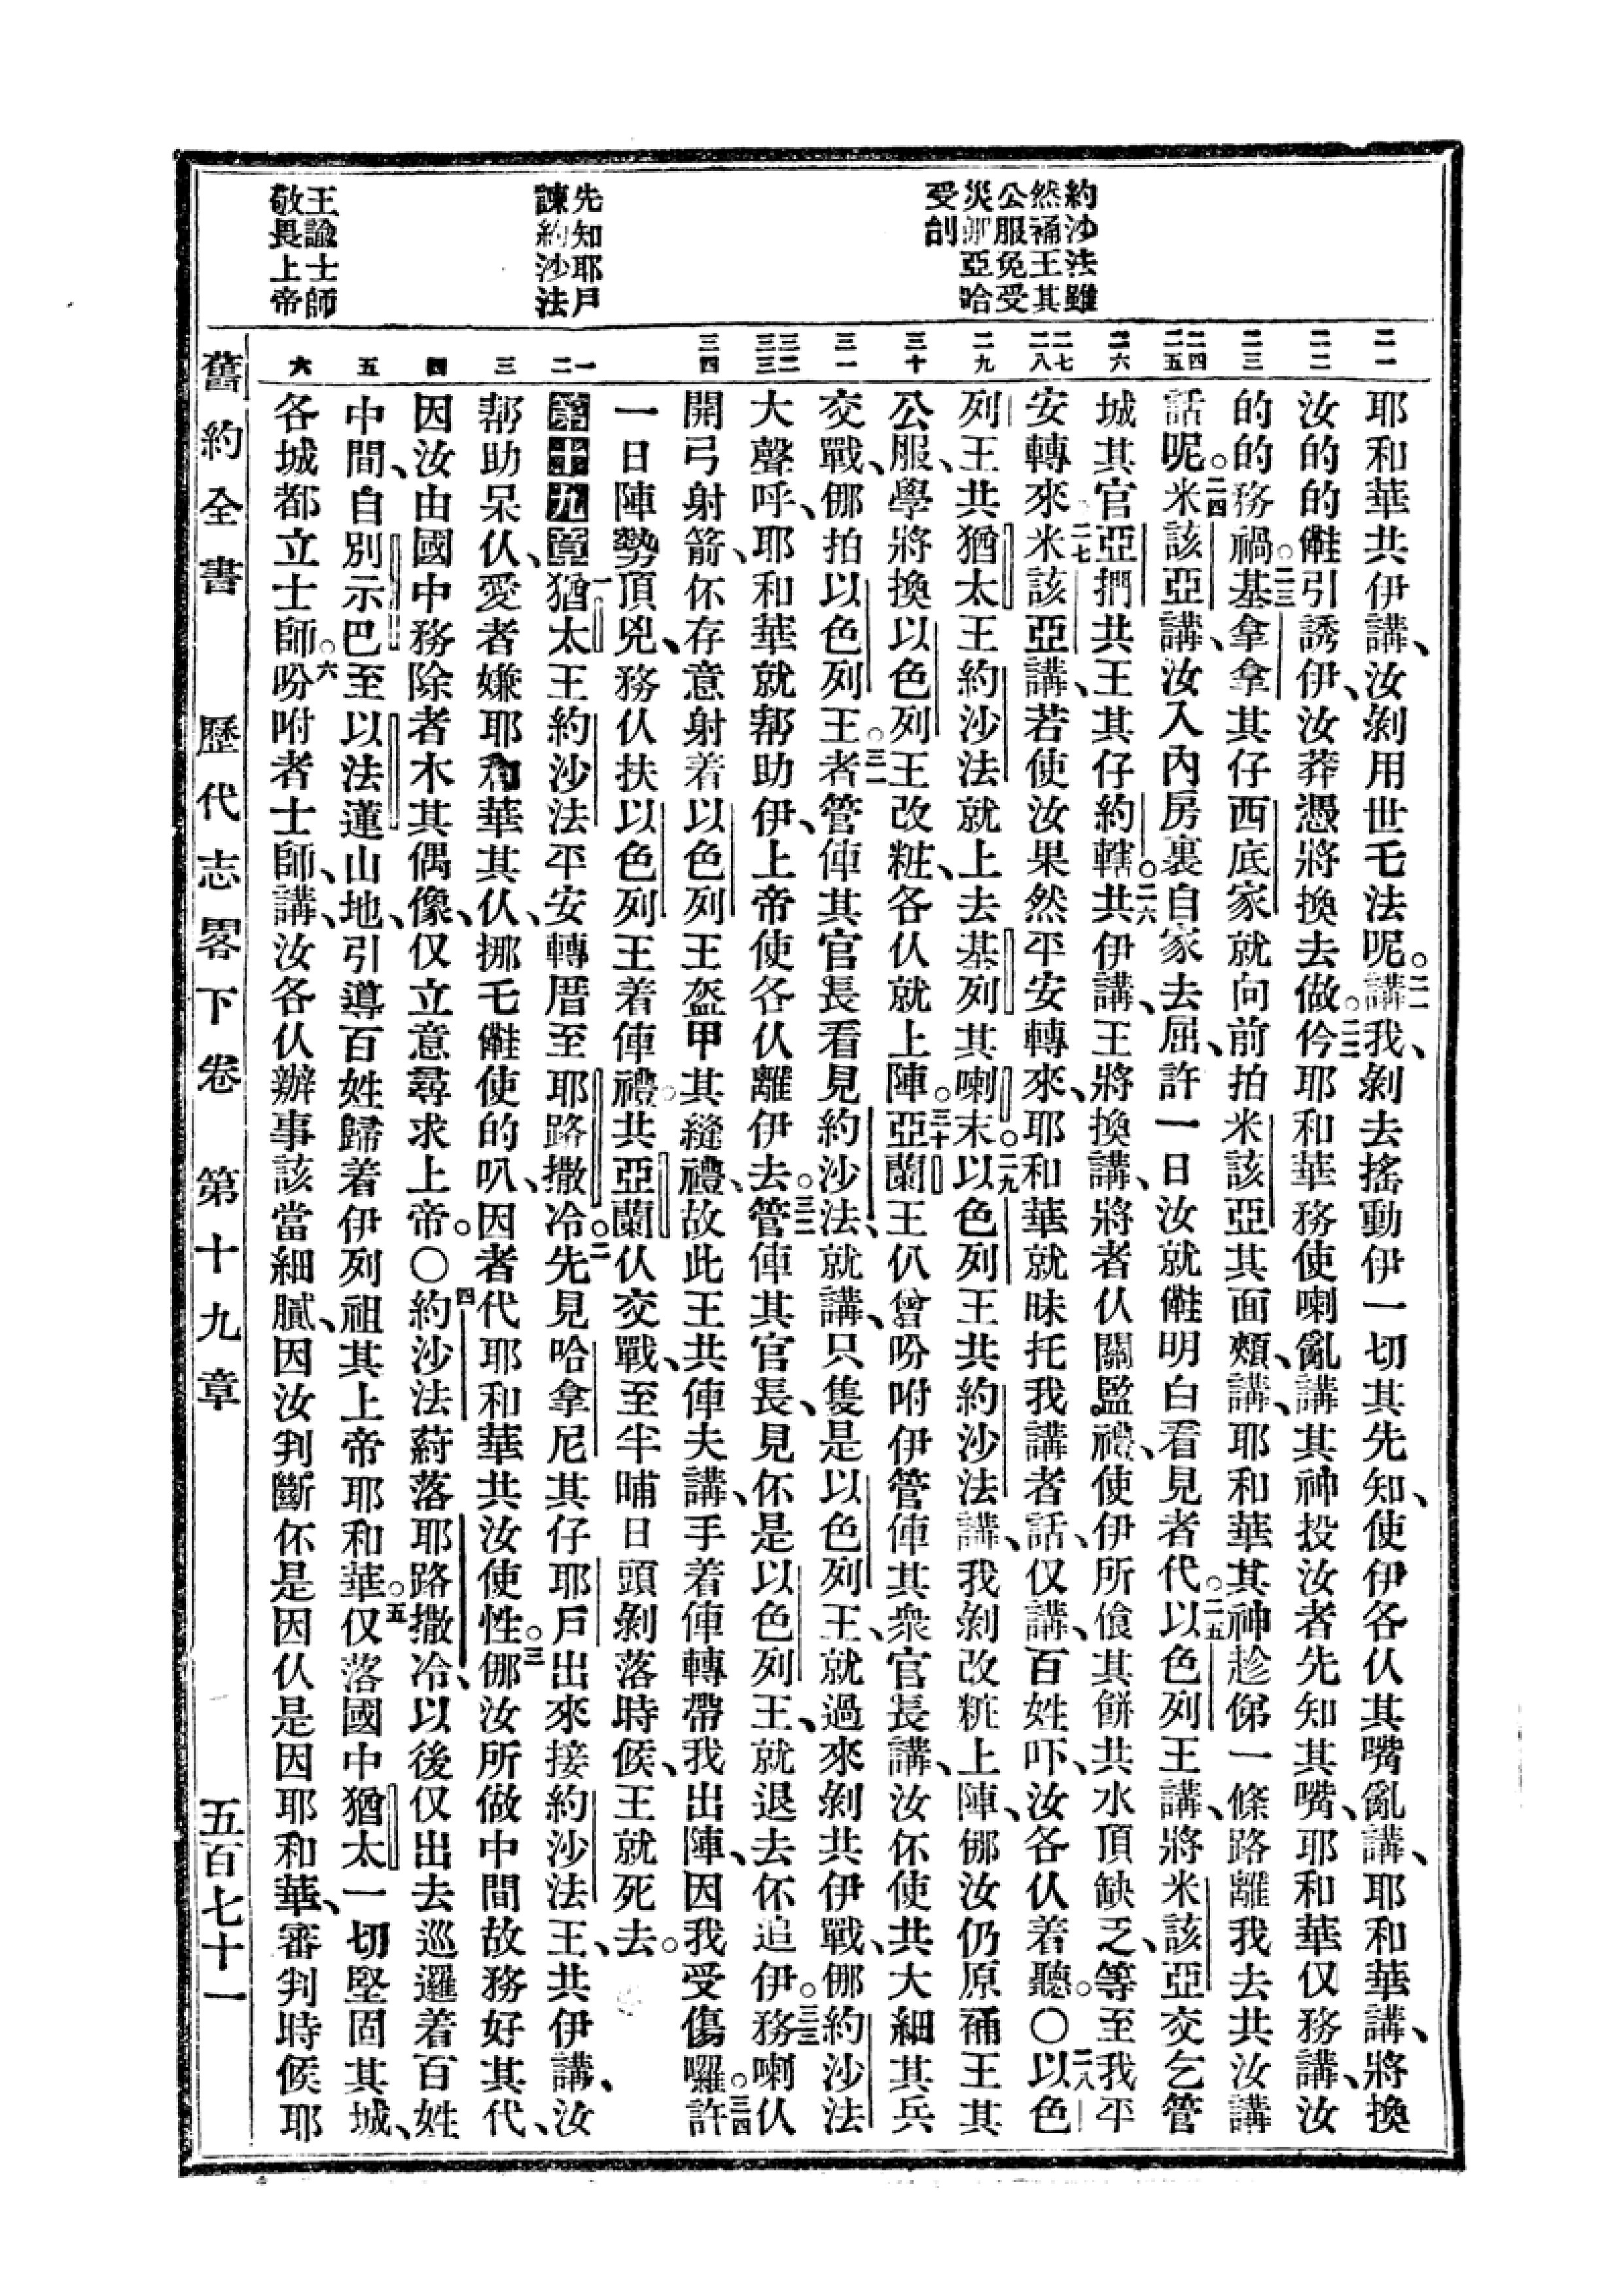 約沙法雖
然裲王其
公服免受
災那亞哈
受創
先知耶戶
諫約沙法
王諭士師
敬畏上帝
二一
二二
二三
二四
二五
二六
二七
二八
二九
三十
三一
三二
三三
三四
一
二
三
四
五
六
耶和華共伊講、汝剝用世乇法呢。二一講我、剝去搖動伊一切其先知、使伊各仈其嘴亂講、耶和華講、將換
汝的的㑚引誘伊、汝莽憑將換去做。二二仱耶和華務使喇亂講其神投汝者先知其嘴、耶和華仅務講、汝
的的務禍。二三基拿拿其仔西底家就向前拍米該亞其面頰、講、耶和華其神趁俤一條路離我去共汝講
話呢。二四米該亞講、汝入內房裏自家去屈、許一日汝就㑚明白看見者代。二五以色列王講、將米該亞交乞管
城其官亞捫共王其仔約轄。二六共伊講、王將換講、將者仈關監禮、使伊所飡其餅共水頂缺乏、等至我平
安轉來。二七米該亞講、若使汝果然平安轉來、耶和華就昧托我講者話、仅講、百姓吓、汝各仈着聽。〇二八以色
列王共猶太王約沙法就上去基列其喇末。二九以色列王共約沙法講、我剝改粧上陣、㑚汝仍原裲王其
公服、學將換以色列王改粧、各仈就上陣。三十亞蘭王仈曾吩咐伊管俥其衆官長講、汝伓使共大細其兵
交戰、㑚拍以色列王者。三一管俥其官長看見約沙法、就講、只隻是以色列王、就過來剝共伊戰、㑚約沙法
大聲呼、耶和華就幇助伊、上帝使各仈離伊去。三二管俥其官長、見伓是以色列王、就退去伓追伊。三三務喇仈
開弓射箭、伓存意射着以色列王盔甲其縫禮、故此王共俥夫講、手着俥轉帶我出陣、因我受傷囉。三四許
一日陣勢頂兇、務仈扶以色列王着俥禮共亞蘭仈交戰、至半晡日頭剝落時候、王就死去。
第十九章 一猶太王約沙法平安轉厝至耶路撒冷。二先見哈拿尼其仔耶戶出來接約沙法王、共伊講、汝
幇助呆仈、愛者嫌耶和華其仈、挪乇㑚使的叭、因者代耶和華共汝使性。三㑚汝所做中間故務好其代、
因汝由國中務除者木其偶像、仅立意尋求上帝。〇四約沙法蒔落耶路撒冷、以後仅出去巡邏着百姓
中間、自別示巴至以法蓮山地、引導百姓歸着伊列祖其上帝耶和華。五仅落國中猶太一切堅固其城、
各城都立士師。六吩咐者士師、講、汝各仈辦事該當細膩、因汝判斷伓是因仈是因耶和華、審判時候耶
舊約全書 歷代志畧下卷 第十九章 五百七十一